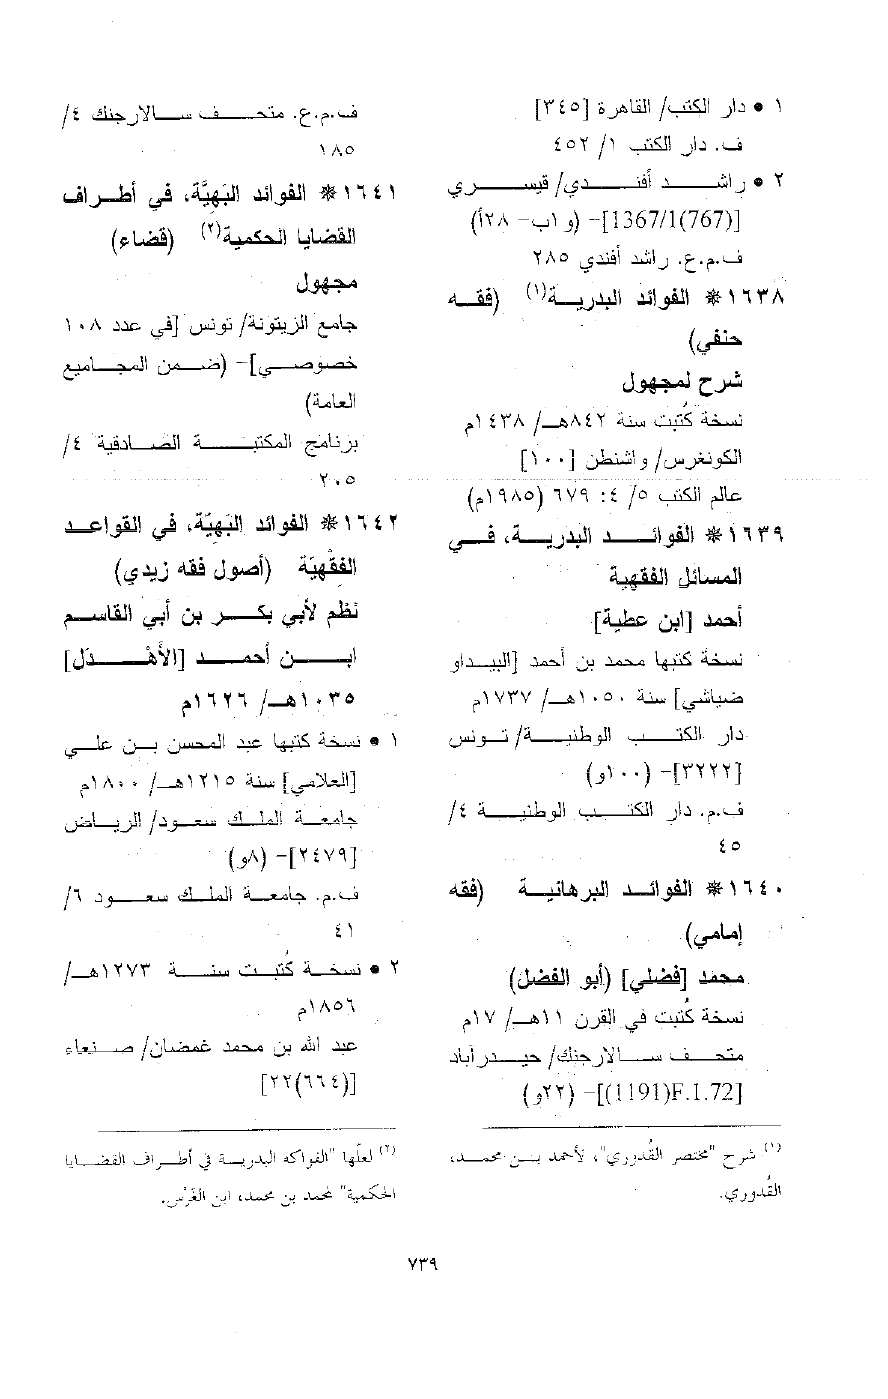 ١ • دار الكتب/ القاهرة [٣٤٥]
ف. دار الكتب ١/ ٤٥٢
٢ • راشد أفندي/ قيسري
[1367/1(767)]- (و١ب- ٢٨أ)
ف.م.ع. راشد أفندي ٢٨٥
١٦٣٨* الفوائد البدرية(١) (فقه
حنفي)
شرح لمجهول
نسخة كُتبت سنة ٨٤٢هـ/ ١٤٣٨م
الكونغرس/ واشنطن [١٠٠]
عالم الكتب ٥/ ٤: ٦٧٩ (١٩٨٥م)
١٦٣٩* الفوائد البدرية، في
المسائل الفقهية
أحمد [ابن عطية]
نسخة كتبها محمد بن أحمد [البيداو
ضياشي] سنة ١٠٥٠هـ/ ١٧٣٧م
دار الكتب الوطنية/ تونس
[٣٢٢٢]- (١٠٠و)
ف.م. دار الكتب الوطنية ٤/
٤٥
١٦٤٠* الفوائد البرهانية (فقه
إمامي)
محمد [فضلي] (أبو الفضل)
نسخة كُتبت في القرن ١١هـ/ ١٧م
متحف سالارجنك/ حيدرآباد
[F.1.72(1191)]- (٢٢و)
(١) شرح "مختصر القُدوري"، لأحمد بن محمد،
القُدوري.
ف.م.ع. متحف سالارجنك ٤/
١٨٥
١٦٤١* الفوائد البَهيَّة، في أطراف
القضايا الحكمية(٢) (قضاء)
مجهول
جامع الزيتونة/ تونس [في عدد ١٠٨
خصوصي]- (ضمن المجاميع
العامة)
برنامج المكتبة الصادقية ٤/
٢٠٥
١٦٤٢* الفوائد البَهيّة، في القواعد
الفقْهيّة (أصول فقه زيدي)
نظْم لأبي بكر بن أبي القاسم
ابن أحمد [الأَهْدَل]
١٠٣٥هـ/ ١٦٢٦م
١ • نسخة كتبها عبد المحسن بن علي
[العلامي] سنة ١٢١٥هـ/ ١٨٠٠م
جامعة الملك سعود/ الرياض
[٢٤٧٩]- (٨و)
ف.م. جامعة الملك سعود ٦/
٤١
٢ • نسخة كُتبت سنة ١٢٧٣هـ/
١٨٥٦م
عبد الله بن محمد غمضان/ صنعاء
[(٦٦٤)٢٢]
(٢) لعلّها "الفواكه البدرية في أطراف القضايا
الحكمية" لمحمد بن محمد، ابن الغَرْس.
٧٣٩